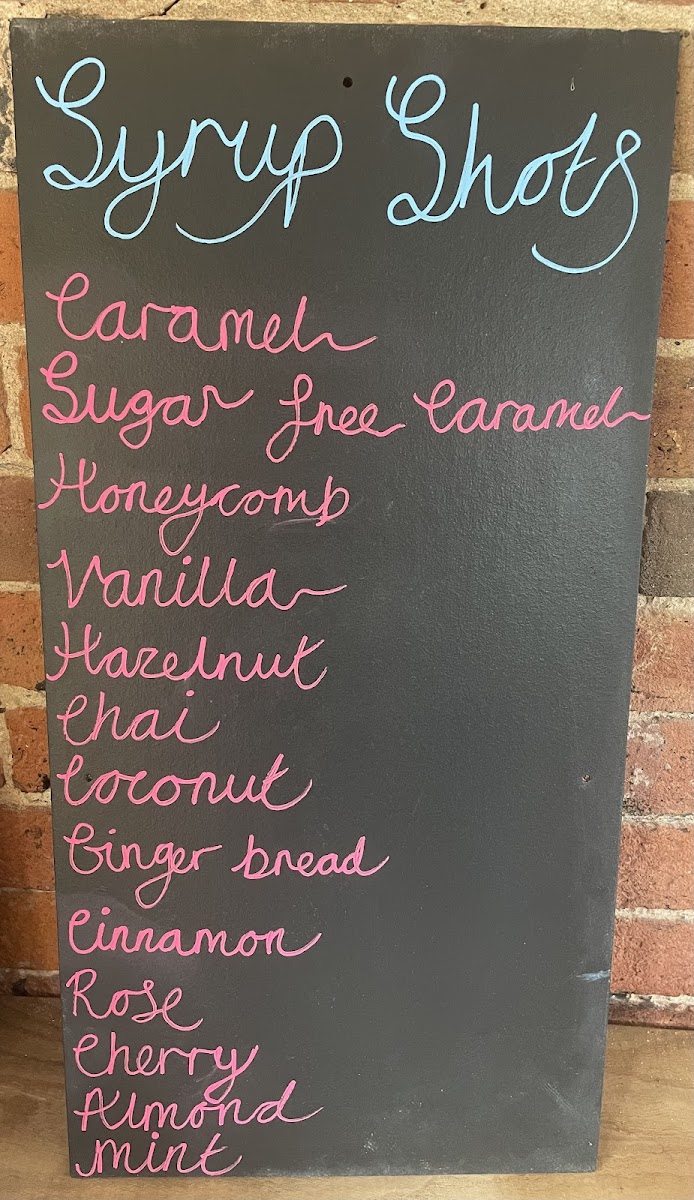 Syrup Shots
Caramel
Sugar free Caramel
Honeycomb
Vanilla
Hazelnut
Chai
Coconut
Ginger bread
Cinnamon
Rose
Cherry
Almond
mint